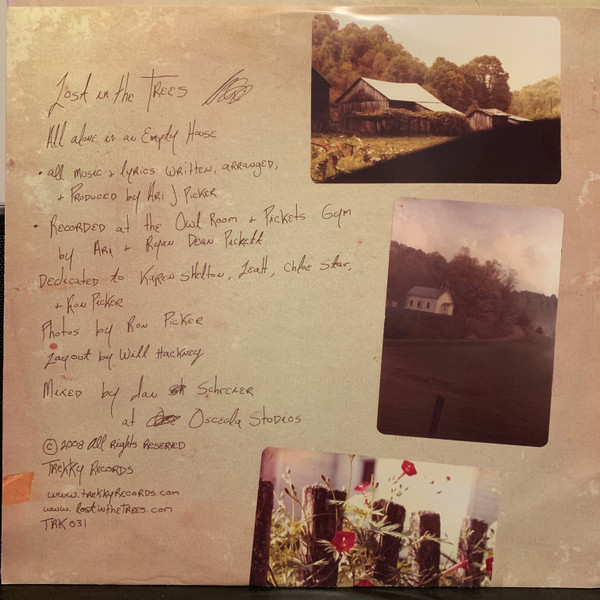 Lost in the Trees
All alone in an Empty House
• all music + lyrics written, arranged,
+ Produced by Ari J Picker
• Recorded at the Owl Room + Pickets Gym
by Ari + Ryan Dean Pickett
Dedicated to Karen Shelton, Leah, Chloe Star,
+ Ron Picker
Photos by Ron Picker
Layout by Will Hackney
Mixed by Ian Schreier
at Osceola Studios
© 2008 All Rights Reserved
Trekky Records
www.trekkyRecords.com
www.lostinthetrees.com
TRK031